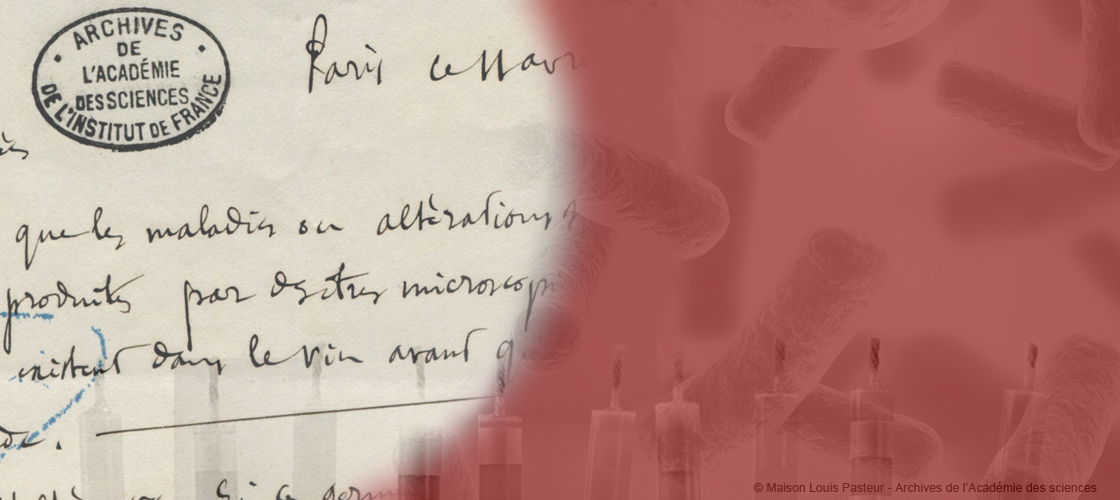 ARCHIVES
DE
L'ACADÉMIE
DES SCIENCES
DE L'INSTITUT DE FRANCE
Paris ce
que les maladies ou altérations
produites par des êtres microscop
existent dans le vin avant q
Si ce germ
© Maison Louis Pasteur - Archives de l'Académie des sciences